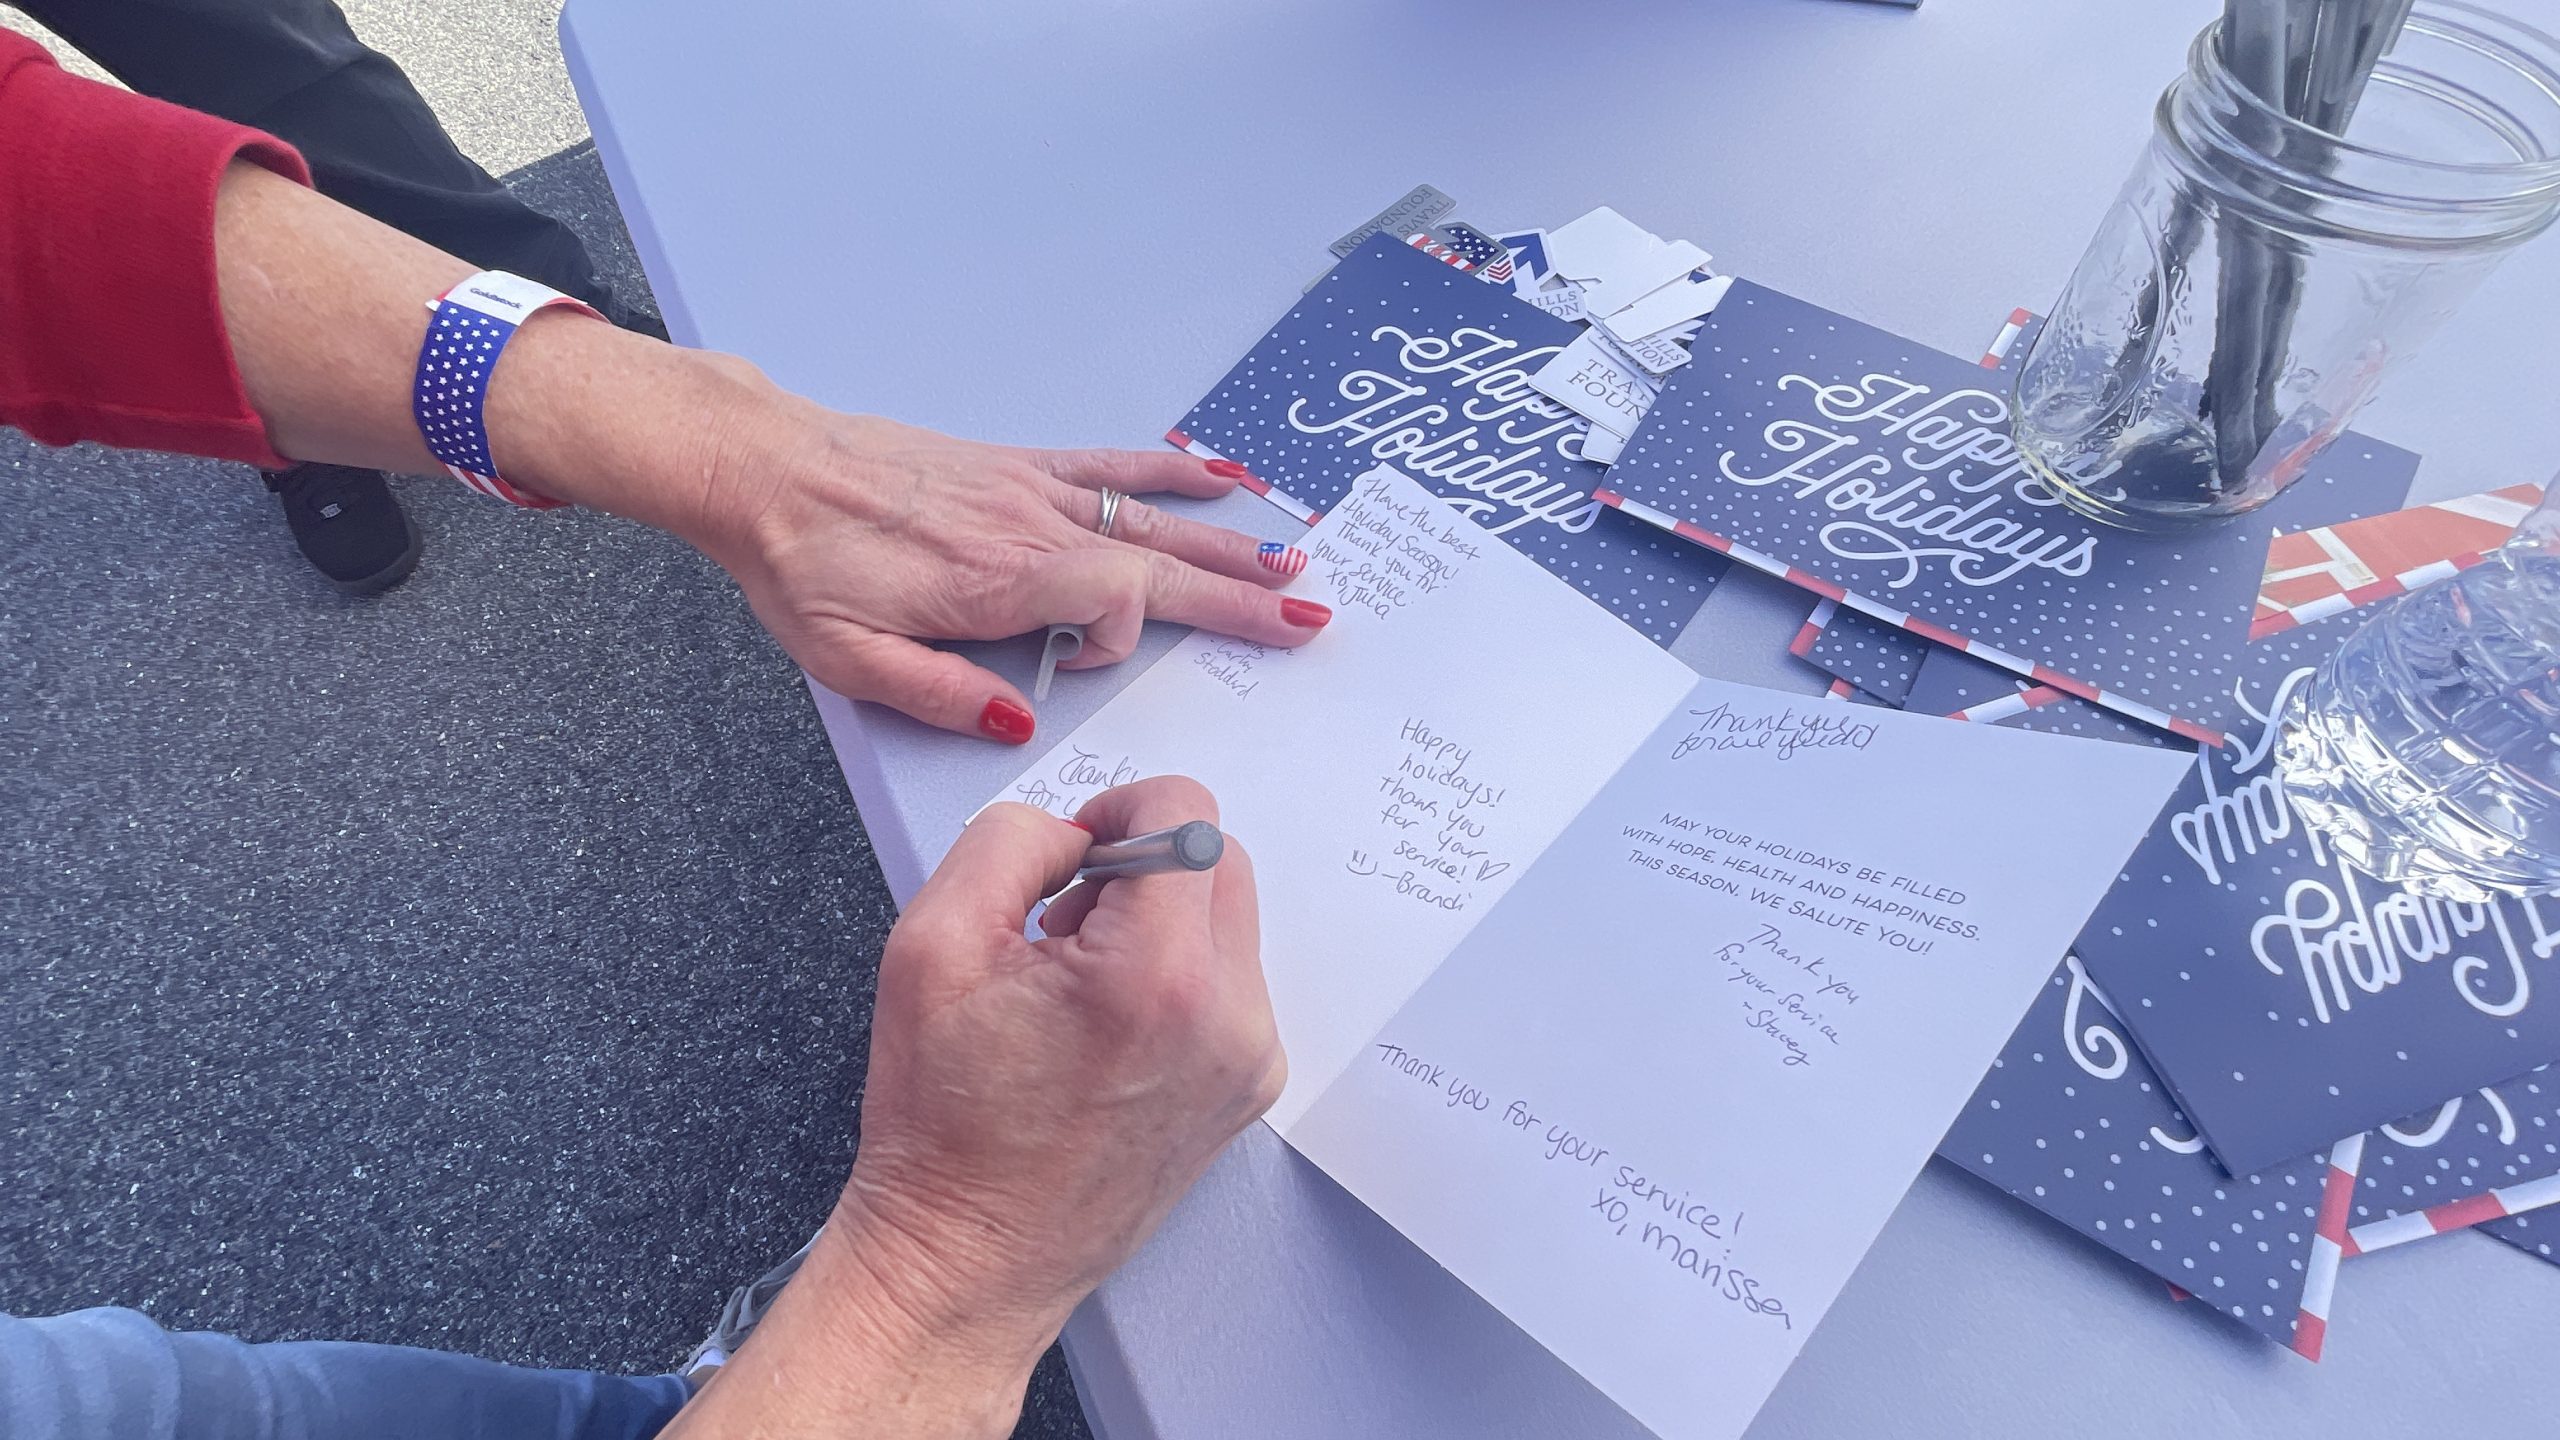 Goldbelly
TRAVIS
FOUNDATION
MILLS
TRAVIS
FOUN
Happy
Holidays
Happy
Holidays
Have the best
Holiday Season!
Thank you for
your service.
xo, Julia
Stoddard
Thank
for y
Happy
holidays!
Thank you
for your
service!
-Brandi
Thank you
for
MAY YOUR HOLIDAYS BE FILLED
WITH HOPE, HEALTH AND HAPPINESS
THIS SEASON. WE SALUTE YOU!
Thank you
for your service
-Stacey
Thank you for your service!
xo, Marissa
Happy
Holidays